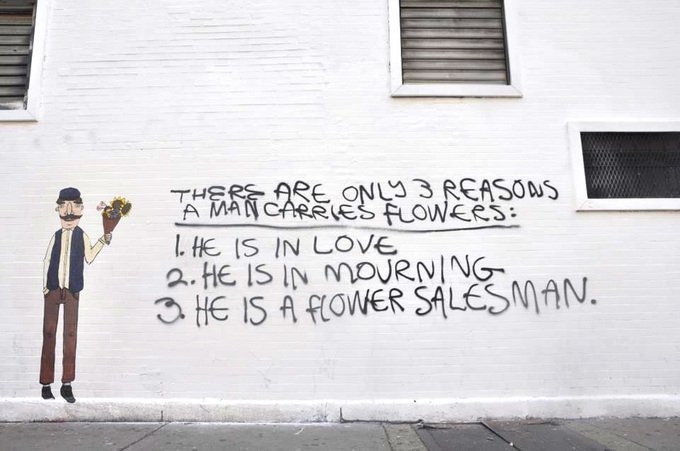 THERE ARE ONLY 3 REASONS
A MAN CARRIES FLOWERS:
1. HE IS IN LOVE
2. HE IS IN MOURNING
3. HE IS A FLOWER SALESMAN.